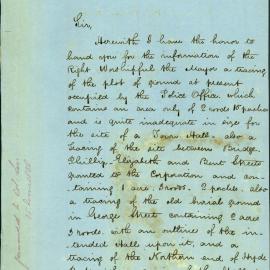 Sir,
Herewith I have the honor to
hand you for the information of the
Right Worshipful the Mayor a tracing
of the plot of ground at present
occupied by the Police Office which
contains an area only of 2 roods 10 perches
and is quite inadequate in size for
the site of a Town Hall. also a
Tracing of the site between Bridge,
Phillip, Elizabeth and Bent Streets
granted to the Corporation and con-
taining 1 acre. 3 roods. 2 perches. also
a tracing of the old burial ground
in George Street containing 2 acres
3 roods. with an outline of the in-
tended Hall upon it, and a
tracing of the Northern end of Hyde